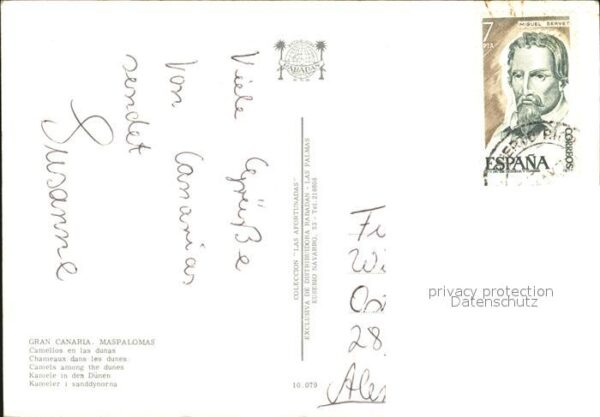 Viele Grüße
Von Canarias
sendet
Susanne
GRAN CANARIA. MASPALOMAS
Camellos en las dunas
Chameaux dans les dunes
Camels among the dunes
Kamele in den Dünen
Kameler i sanddynorna
10.079
COLECCION "LAS AFORTUNADAS"
EXCLUSIVA DE DISTRIBUIDORA RABADAN - LAS PALMAS
EUSEBIO NAVARRO, 53 - Tel.
RABADAN
7
PTA
MIGUEL SERVET
CORREOS
ESPAÑA
Wi
28.
privacy protection
Datenschutz